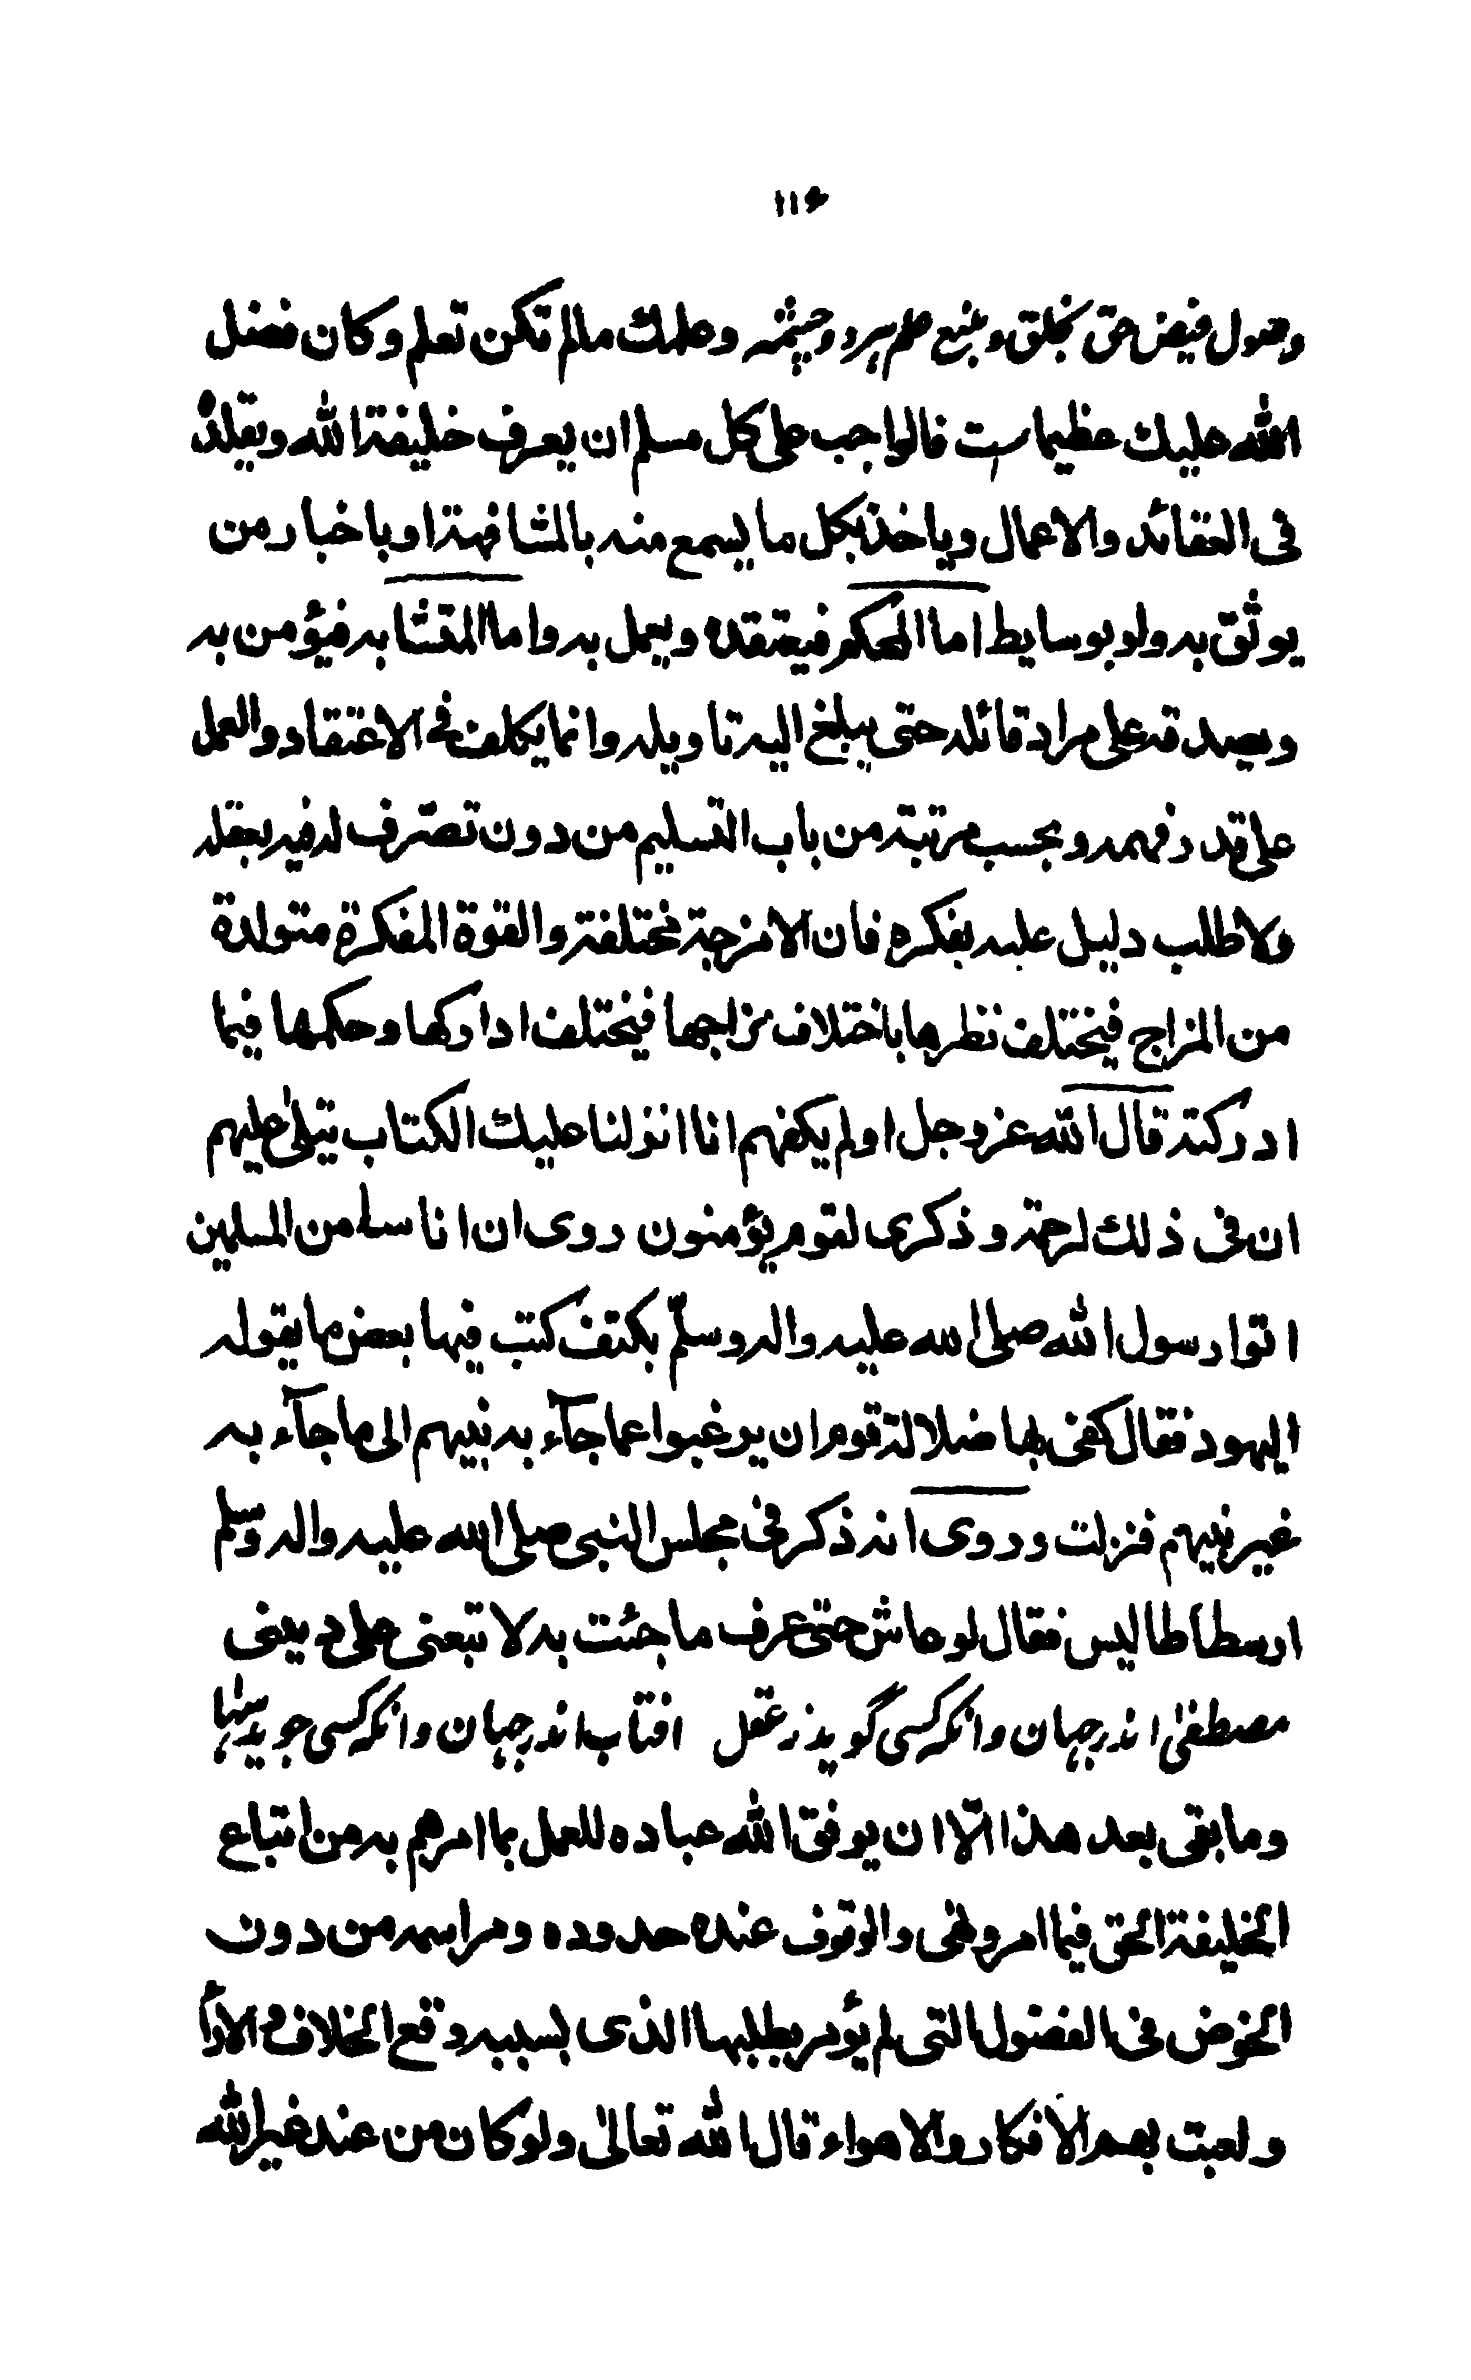 ۱۱۶
وصول فیض حق بخلق و منبع علم سرو و چشمه وعلمك مالم تكن تعلم وكان فضل
الله عليك عظيما است فالواجب على كل مسلم ان يعرف خليفة الله ويقلده
فى العقائد والاعمال وياخذ بكل ما يسمع منه بالمشافهة او باخبار من
يوثق به ولو بوسايط اما المحكم فيعتقده ويعمل به واما المتشابه فيؤمن به
ويصدقه على مراد قائله حتى يبلغ اليه تاويله وانما يكلف فى الاعتقاد والعمل
على قدر فهمه وبحسب مرتبته من باب التسليم من دون تصرف له فيه بعقله
ولا طلب دليل عليه بفكره فان الامزجة مختلفة والقوة المفكرة متولدة
من المزاج فيختلف نظرها باختلاف مزاجها فيختلف ادراكها وحكمها فيما
ادركته قال الله عز وجل اولم يكفهم انا انزلنا عليك الكتاب يتلى عليهم
ان فى ذلك لرحمة وذكرى لقوم يؤمنون روى ان اناسا من المسلمين
اتوا رسول الله صلى الله عليه واله وسلّم بكتف كتب فيها بعض ما يقوله
اليهود فقال كفى بها ضلالة قوم ان يرغبوا عما جآء به نبيهم الى ما جآء به
غير نبيهم فنزلت وروى انه ذكر فى مجلس النبى صلى الله عليه واله وسلم
ارسطاطاليس فقال لو عاش حتى عرف ما جئت به لاتبعنى على دينى
مصطفىٰ اندر جهان وانگه کسی گوید ز عقل افتاب اندر جهان وانگه کسی جوید سها
وما بقى بعد هذا الّا ان يوفق الله عباده للعمل بما امرهم به من اتباع
الخليفة الحق فيما امر ونهى والوقوف عنده حدوده ومراسمه من دون
الخوض فى الفضول التى لم يؤمر بطلبها الذى بسببه وقع الخلاف والاراء
ولعبت بهم الافكار والاهواء قال الله تعالىٰ ولو كان من عند غير الله